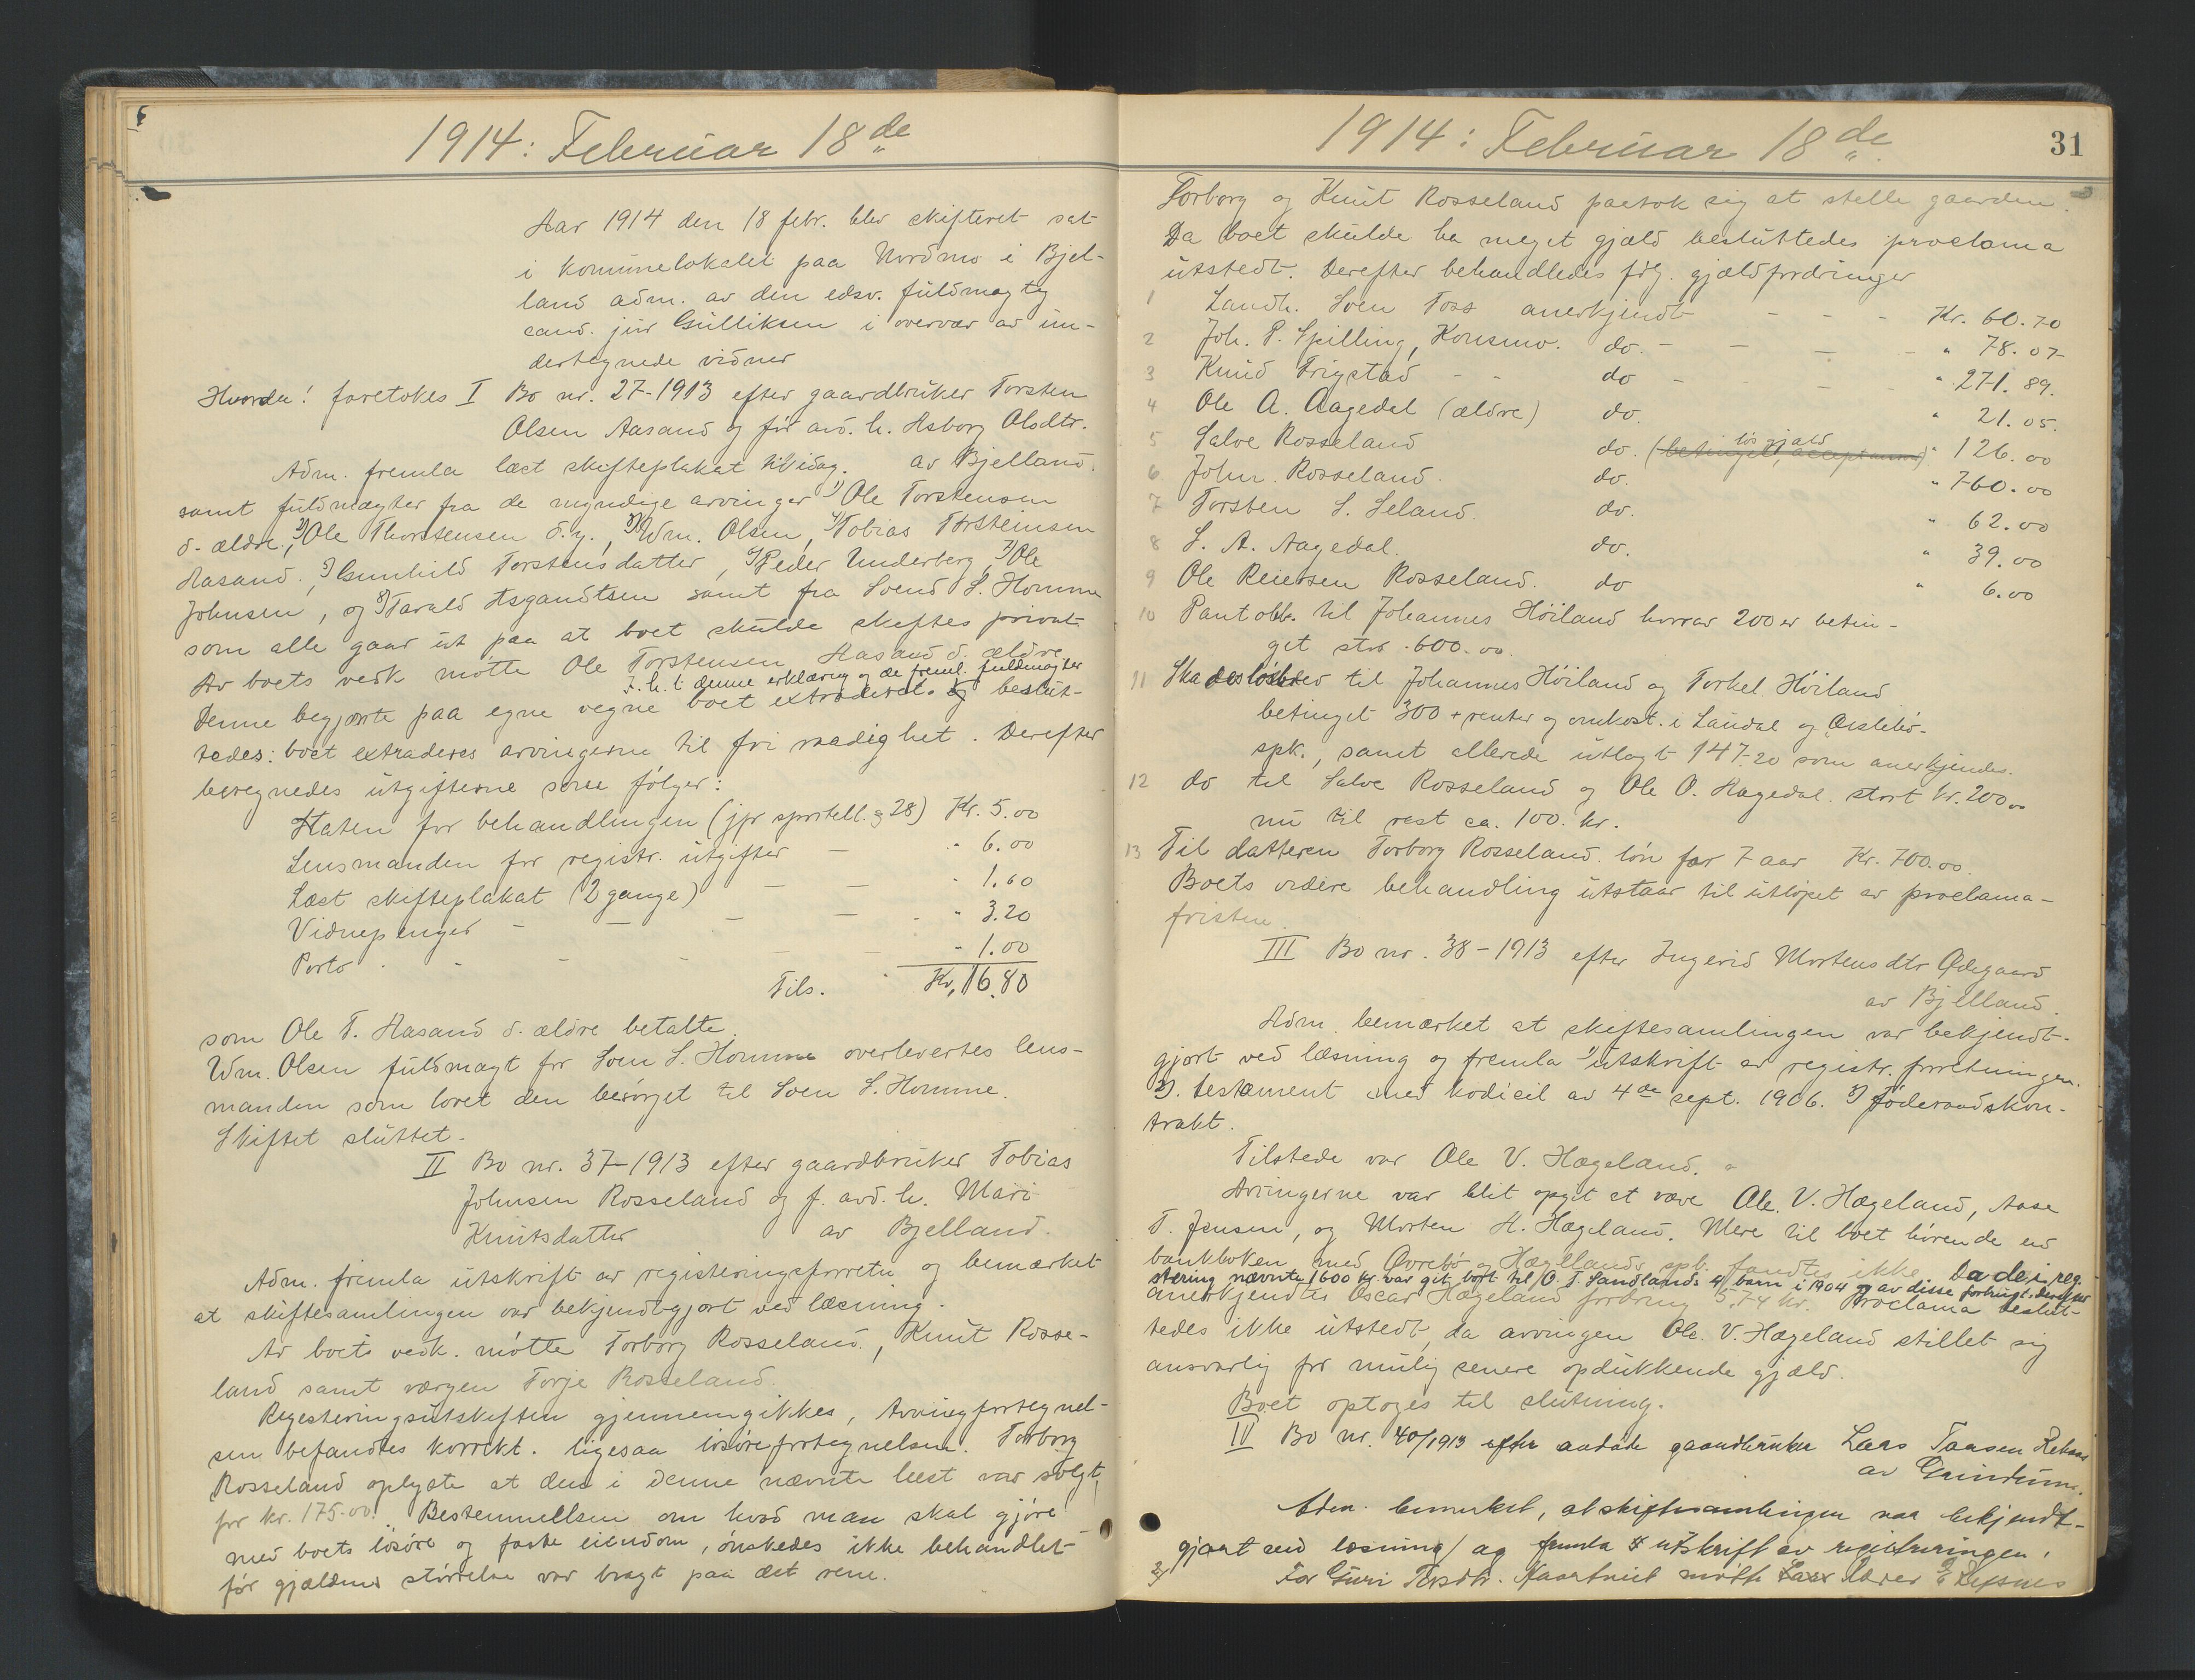 1914: Februar 18de
Aar 1914 den 18 febr. blev skifteret sat
i kommunelokalet paa Nordmo i Bjel-
land adm. av den edsv. fuldmægtig
cand. jur Gulliksen i overvær av un-
dertegnede vidner
Hvorda! foretokes I Bo nr. 27-1913 efter gaardbruker Torsten
Olsen Aasand og før avd. h. Asborg Olsdtr.
av Bjelland.
Adm. fremla læst skifteplakat til idag.
samt fuldmagter fra de myndige arvinger 1) Ole Torstensen
d. ældre, 2) Ole Thorstensen d. y., 3) Wm. Olsen, 4) Tobias Torsteinsen
Aasand, 5) Gunhild Torstensdatter, 6) Peder Underberg, 7) Ole
Johnsen, og 8) Tarald Asgautsen samt fra Svend S. Homme
som alle gaar ut paa at boet skulde skiftes privat
Av boets vedk møtte Ole Torstensen Aasand d. ældre
I. h. t denne erklæring og de freml. fuldmagter
Denne begjærte paa egne vegne boet extraderet. og beslut-
tedes: boet extraderes arvingerne til fri raadighet. Derefter
beregnedes utgifterne som følger:
Staten for behandlingen (jfr sportell. § 28) Kr. 5.00
Lensmanden for registr. utgifter — " 6.00
Læst skifteplakat (2 gange) — — " 1.60
Vidnepenger - — — — - " 3.20
Porto - - - - — " 1.00
Tils. Kr. 16.80
som Ole T. Aasand d. ældre betalte.
Wm. Olsen fuldmagt for Sven S. Homme overlevertes lens-
manden som lovet den besørget til Sven S. Homme.
Skiftet sluttet.
II Bo nr. 37-1913 efter gaardbruker Tobias
Johnsen Rosseland og f. avd. h. Mari
Knutsdatter av Bjelland.
Adm. fremla utskrift av registeringsforretn. og bemærket
at skiftesamlingen var bekjendtgjort ved læsning.
Av boets vedk. møtte Torborg Rosseland, Knut Rosse-
land samt værgen Torje Rosseland.
Registeringsutskriften gjennemgikkes, Arvingfortegnel-
sen befandtes korrekt. ligesaa løsørefortegnelsen. Torborg
Rosseland oplyste at den i denne nævnte hest var solgt,
for kr. 175.00. Bestemmellsen om hvad man skal gjøre
med boets løsøre og faste eiendom, ønskedes ikke behandlet
før gjældens størrelse var bragt paa det rene.
1914: Februar 18de
31
Torborg og Knut Rosseland paatok sig at stelle gaarden.
Da boet skulde ha meget gjæld besluttedes proclama
utstedt. Derefter behandledes følg. gjældsfordringer
1 Landh. Sven Foss anerkjendt - - - - Kr. 60.70
2 Joh. P. Spilling, Konsmo. do. - — — - " 78.07
3 Knud Trygstad - - do - - — - " 271.89.
4 Ole A. Aagedal (ældre) do. " 21.05.
5 Salve Rosseland do. løs gjæld " 126.00
6 John Rosseland. do. " 760.00
7 Torsten S. Seland. do. " 62.00
8 S. A. Aagedal. do. " 39.00
9 Ole Reiersen Rosseland. do " 6.00
10 Pantobl. til Johannes Høiland hvorav 200 er betin-
get stor 600.00.
11 Skadesløsbrev til Johannes Høiland og Torkel Høiland
betinget 300 + renter og omkost. i Laudal og Øislebø-
spk., samt allerede utlagt 147.20 som anerkjendes.
12 do til Salve Rosseland og Ole O. Aagedal. stort kr. 200.00
nu til rest ca. 100. kr.
13 Til datteren Torborg Rosseland. løn for 7 aar Kr. 700.00.
Boets videre behandling utstaar til utløpet av proclama-
fristen.
III Bo nr. 38-1913 efter Ingerid Mortensdtr Ødegaard
av Bjelland.
Adm. bemærket at skiftesamlingen var bekjendt-
gjort ved læsning og fremla 1) utskrift av registr. forretningen.
2). testament med kodicil av 4de sept. 1906. 3) føderaadskon-
trakt.
Tilstede var Ole V. Hægeland.
Arvingerne var blit opgit at være Ole. V. Hægeland, Aase
T. Jensen, og Morten H. Hægeland. Mere til boet hørende end
bankboken med Øvrebø og Hægelands spb. fandtes ikke Da de i reg.
stering nævnte 1600 kr var git bort til O. T. Sandlands 4 barn i 1904 og av disse forbrugt. Derefter
anerkjendtes Oscar Hægeland fordring 5.74 kr. Proclama beslut-
tedes ikke utstedt, da arvingen Ole. V. Hægeland stillet sig
ansvarlig for mulig senere opdukkende gjæld.
Boet optoges til slutning.
IV Bo nr. 40/1913 efter avdøde gaardbruker Lars Taasen
av Grindum.
Adm. bemerket, at skiftesamlingen var bekjendt-
gjort ved læsning og fremla utskrift av registreringen.
For Guri møtte